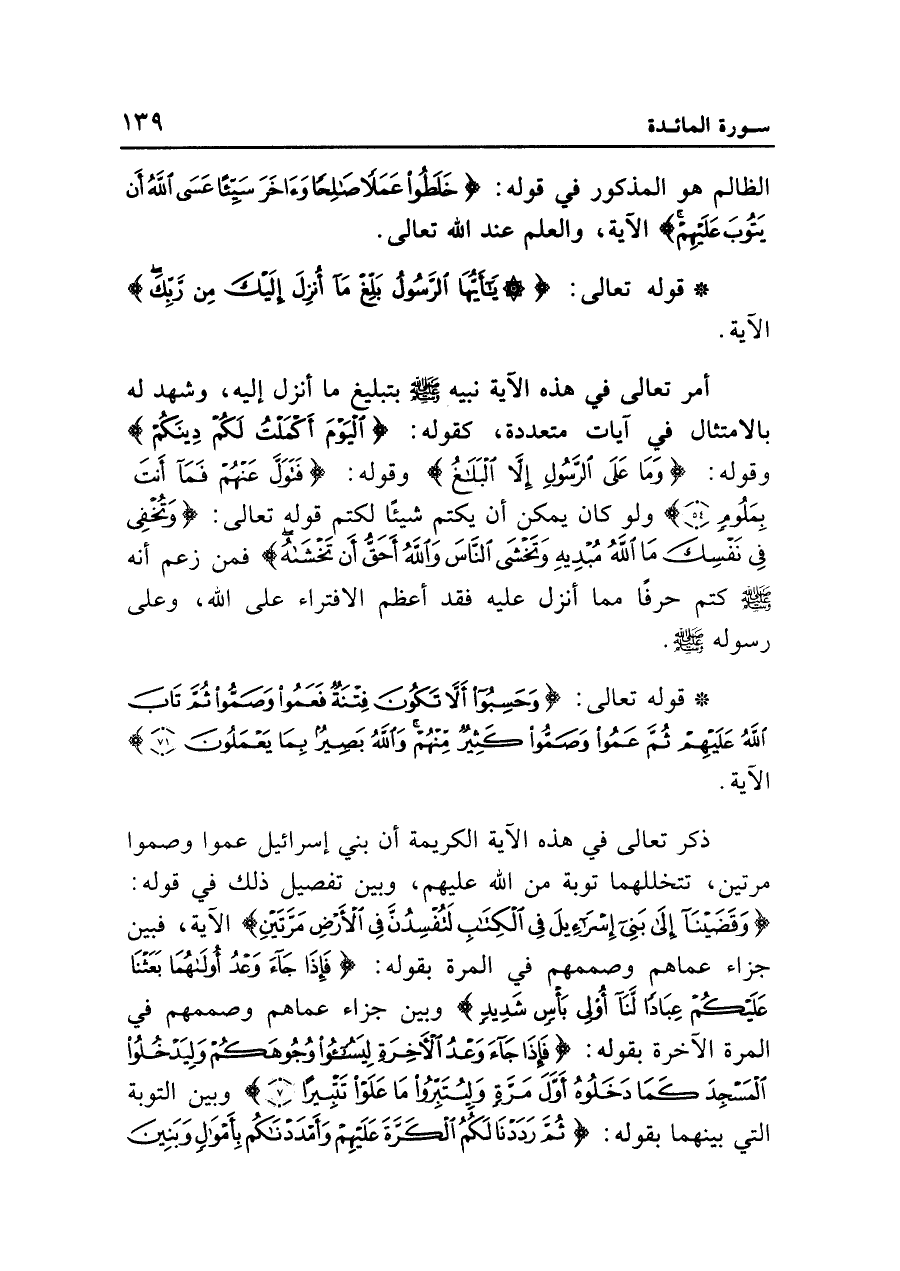 سورة المائدة ١٣٩
الظالم هو المذكور في قوله: ﴿ خَلَطُوا۟ عَمَلًا صَٰلِحًا وَءَاخَرَ سَيِّئًا عَسَى ٱللَّهُ أَن
يَتُوبَ عَلَيْهِمْۚ ﴾ الآية، والعلم عند الله تعالى.
* قوله تعالى: ﴿ ۞ يَٰٓأَيُّهَا ٱلرَّسُولُ بَلِّغْ مَآ أُنزِلَ إِلَيْكَ مِن رَّبِّكَۖ ﴾
الآية.
أمر تعالى في هذه الآية نبيه ﷺ بتبليغ ما أنزل إليه، وشهد له
بالامتثال في آيات متعددة، كقوله: ﴿ ٱلْيَوْمَ أَكْمَلْتُ لَكُمْ دِينَكُمْ ﴾
وقوله: ﴿ وَمَا عَلَى ٱلرَّسُولِ إِلَّا ٱلْبَلَٰغُ ﴾ وقوله: ﴿ فَتَوَلَّ عَنْهُمْ فَمَآ أَنتَ
بِمَلُومٍ ٥٤ ﴾ ولو كان يمكن أن يكتم شيئًا لكتم قوله تعالى: ﴿ وَتُخْفِى
فِى نَفْسِكَ مَا ٱللَّهُ مُبْدِيهِ وَتَخْشَى ٱلنَّاسَ وَٱللَّهُ أَحَقُّ أَن تَخْشَىٰهُۖ ﴾ فمن زعم أنه
ﷺ كتم حرفًا مما أنزل عليه فقد أعظم الافتراء على الله، وعلى
رسوله ﷺ.
* قوله تعالى: ﴿ وَحَسِبُوٓا۟ أَلَّا تَكُونَ فِتْنَةٌ فَعَمُوا۟ وَصَمُّوا۟ ثُمَّ تَابَ
ٱللَّهُ عَلَيْهِمْ ثُمَّ عَمُوا۟ وَصَمُّوا۟ كَثِيرٌ مِّنْهُمْۚ وَٱللَّهُ بَصِيرٌۢ بِمَا يَعْمَلُونَ ٧١ ﴾
الآية.
ذكر تعالى في هذه الآية الكريمة أن بني إسرائيل عموا وصموا
مرتين، تتخللهما توبة من الله عليهم، وبين تفصيل ذلك في قوله:
﴿ وَقَضَيْنَآ إِلَىٰ بَنِىٓ إِسْرَٰٓءِيلَ فِى ٱلْكِتَٰبِ لَتُفْسِدُنَّ فِى ٱلْأَرْضِ مَرَّتَيْنِ ﴾ الآية، فبين
جزاء عماهم وصممهم في المرة بقوله: ﴿ فَإِذَا جَآءَ وَعْدُ أُولَىٰهُمَا بَعَثْنَا
عَلَيْكُمْ عِبَادًا لَّنَآ أُو۟لِى بَأْسٍ شَدِيدٍ ﴾ وبين جزاء عماهم وصممهم في
المرة الآخرة بقوله: ﴿ فَإِذَا جَآءَ وَعْدُ ٱلْءَاخِرَةِ لِيَسُـۥٓـُٔوا۟ وُجُوهَكُمْ وَلِيَدْخُلُوا۟
ٱلْمَسْجِدَ كَمَا دَخَلُوهُ أَوَّلَ مَرَّةٍ وَلِيُتَبِّرُوا۟ مَا عَلَوْا۟ تَتْبِيرًا ٧ ﴾ وبين التوبة
التي بينهما بقوله: ﴿ ثُمَّ رَدَدْنَا لَكُمُ ٱلْكَرَّةَ عَلَيْهِمْ وَأَمْدَدْنَٰكُم بِأَمْوَٰلٍ وَبَنِينَ